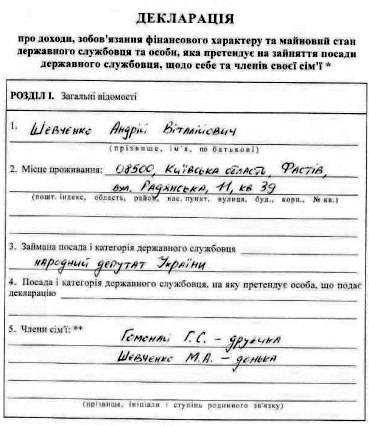 ДЕКЛАРАЦІЯ
про доходи, зобов'язання фінансового характеру та майновий стан
державного службовця та особи, яка претендує на зайняття посади
державного службовця, щодо себе та членів своєї сім'ї *
РОЗДІЛ I. Загальні відомості
1. Шевченко Андрій Віталійович
(прізвище, ім'я, по батькові)
2. Місце проживання: 08500, Київська область, Фастів,
вул. Радянська, 11, кв 39
(пошт. індекс, область, район, нас. пункт, вулиця, буд., корп., № кв.)
3. Займана посада і категорія державного службовця
народний депутат України
4. Посада і категорія державного службовця, на яку претендує особа, що подає
декларацію
5. Члени сім'ї: ** Гомонай Г.С. – дружина
Шевченко М.А. – донька
(прізвище, ініціали і ступінь родинного зв'язку)